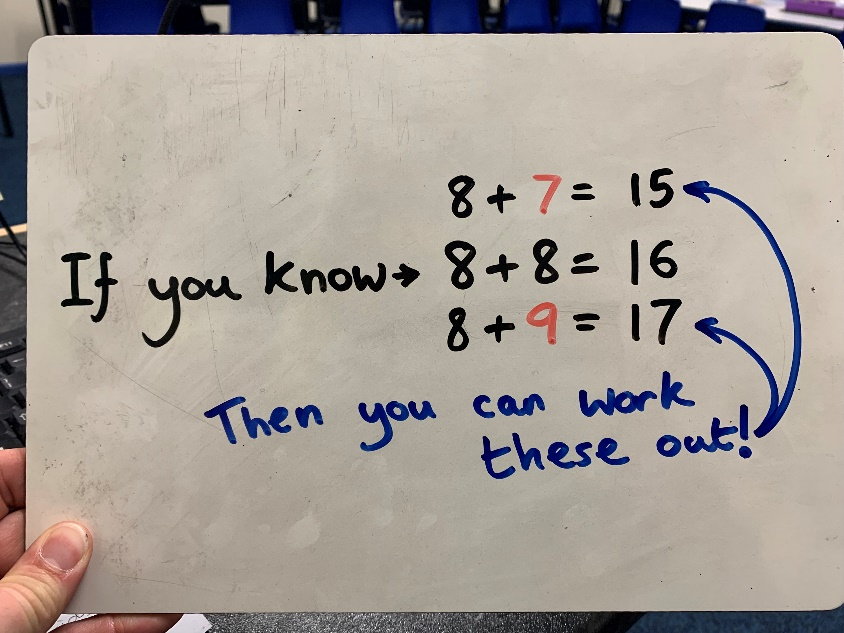 8 + 7 = 15
If you know → 8 + 8 = 16
8 + 9 = 17
Then you can work
these out!